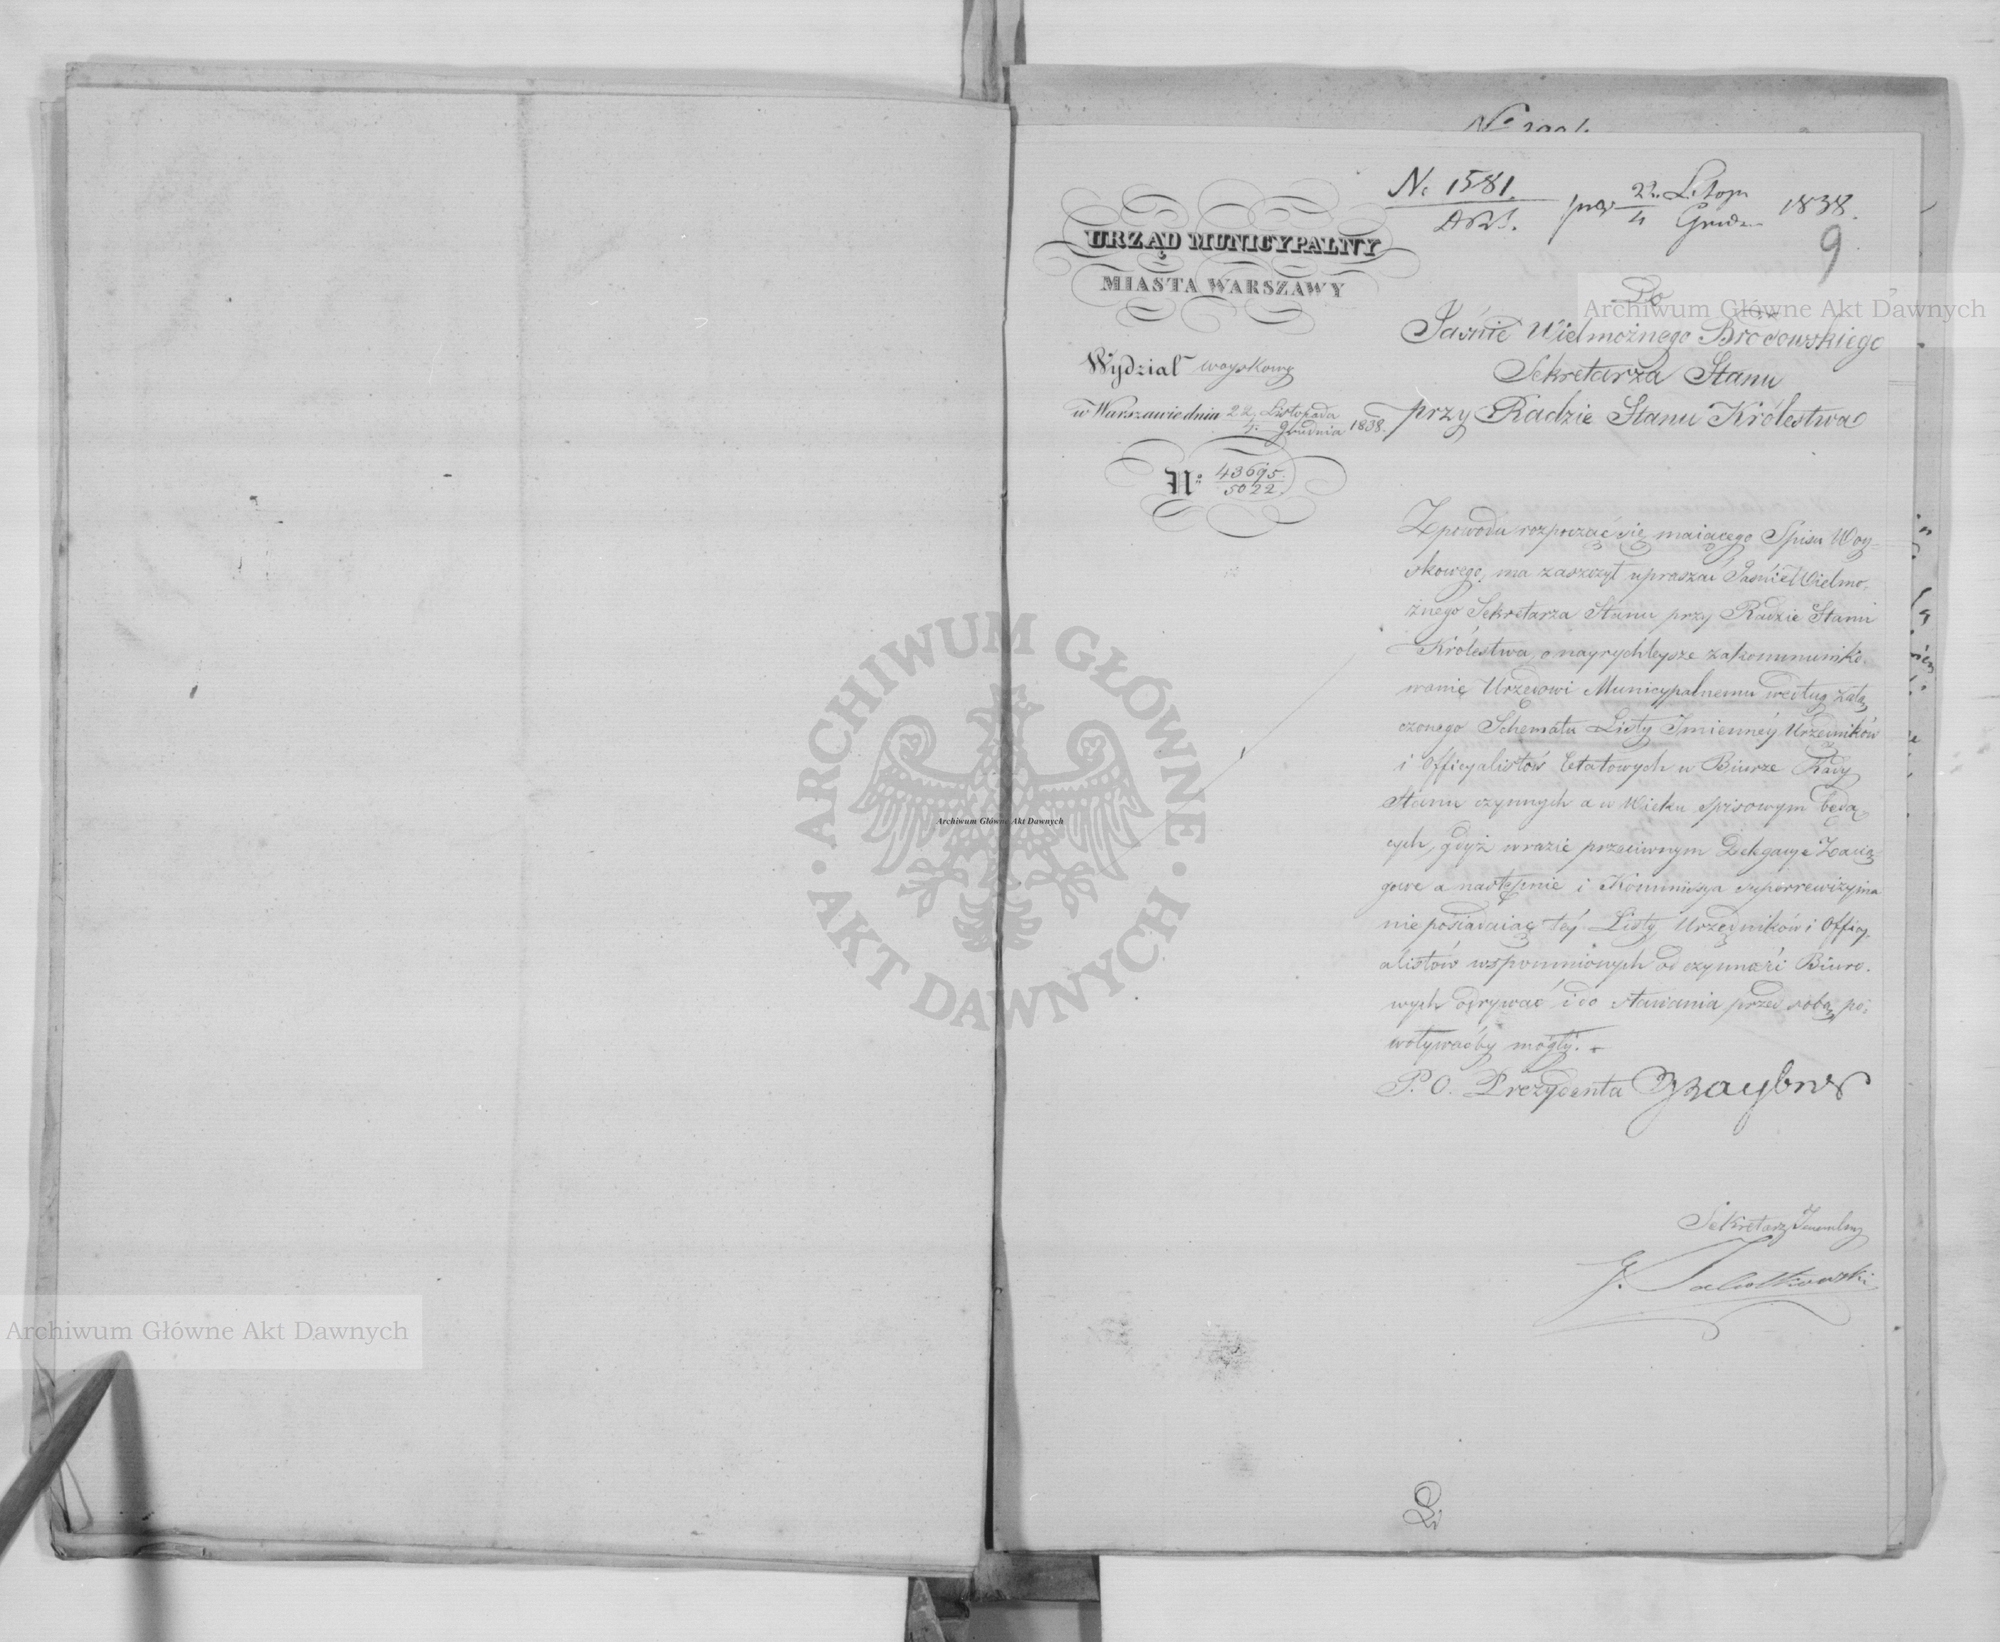 N. 1581. prez 22. Listop. / 4 Grud. 1838.
9
URZĄD MUNICYPALNY
MIASTA WARSZAWY
Wydział woyskowy
w Warszawie dnia 22. Listopada / 4. Grudnia 1838.
N. 43695. / 5022.
Do
Jaśnie Wielmożnego Brodowskiego
Sekretarza Stanu
przy Radzie Stanu Królestwa
Z powodu rozpocząć się maiącego Spisu Woy-
skowego, ma zaszczyt upraszać Jaśnie Wielmo-
żnego Sekretarza Stanu przy Radzie Stanu
Królestwa, o nayrychleysze zakommuniko-
wanie Urzędowi Municypalnemu według załą-
czonego Schematu Listy Imienney Urzędników
i Officyalistów Etatowych w Biurze Rady
Stanu czynnych a w Wieku spisowym będą-
cych, gdyż w razie przeciwnym Delegacye Zacią-
gowe a następnie i Kommissya superrewizyina
nie posiadaiąc téy Listy Urzędników i Officy-
alistów wspomnionych od czynności Biuro-
wych odrywać i do stawania przed sobą po-
woływaćby mogły.
P. O. Prezydenta Graybner
Sekretarz Jeneralny
Archiwum Główne Akt Dawnych
ARCHIWUM GŁÓWNE
AKT DAWNYCH
Archiwum Główne Akt Dawnych
Archiwum Główne Akt Dawnych